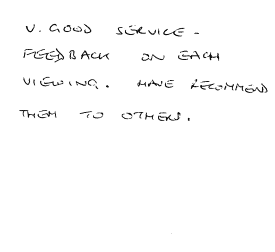 V. GOOD SERVICE -
FEEDBACK ON EACH
VIEWING. HAVE RECOMMEND
THEM TO OTHERS.